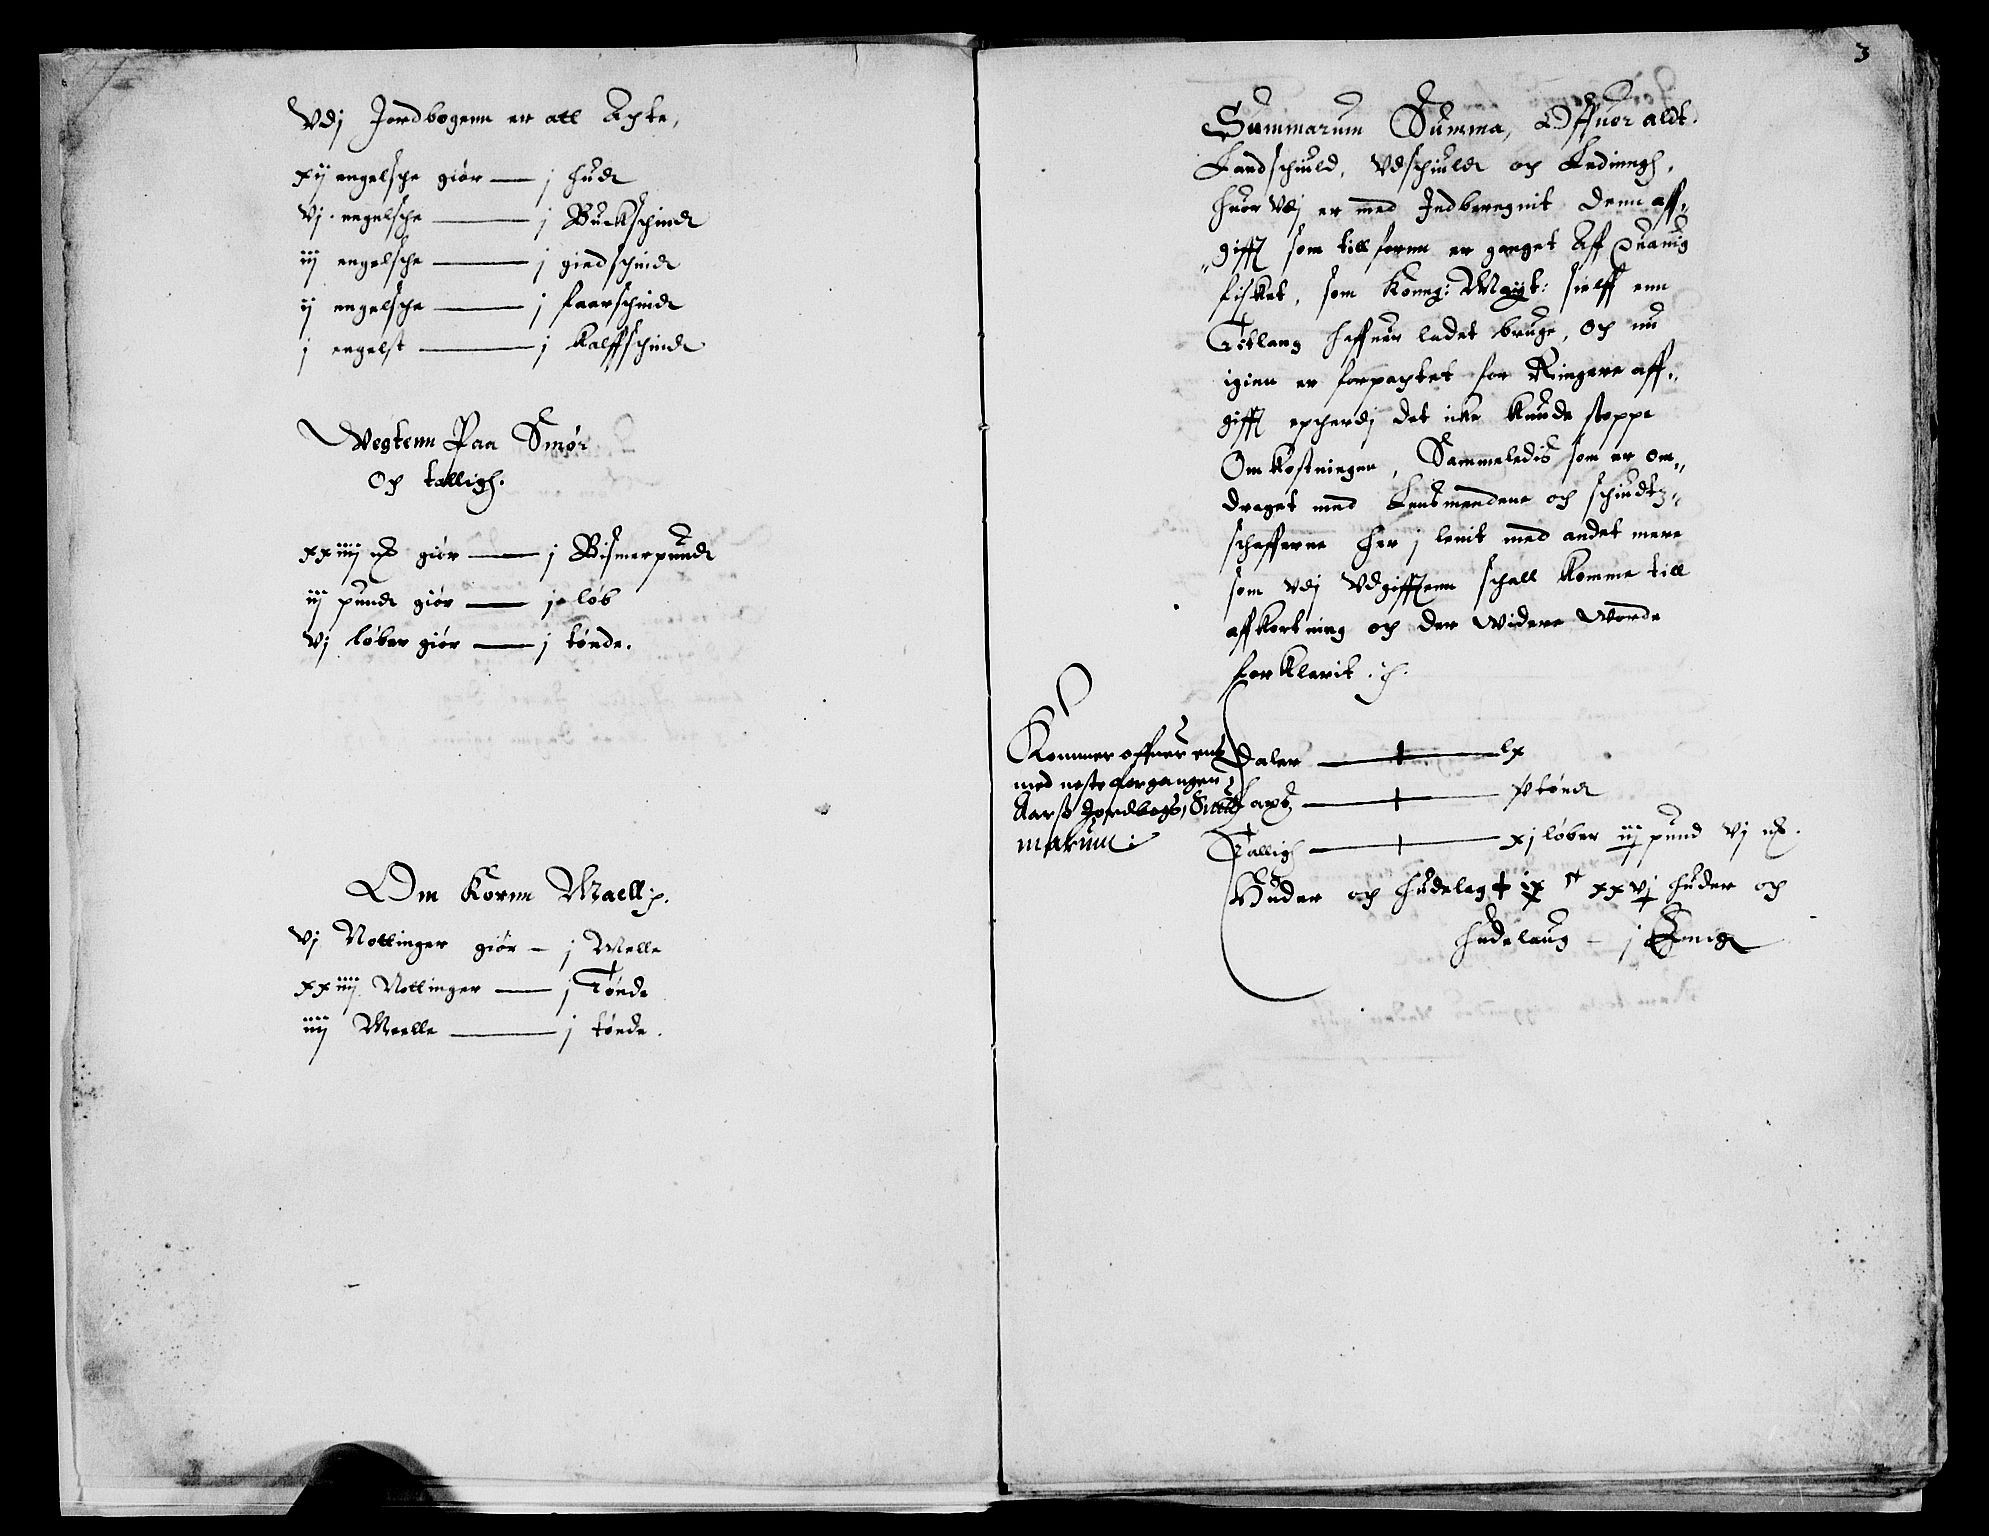 Vdj Jordbogenn er att Achte,
xij engelsche giør — j hudt
vj engelsche — j Buckschindt
iij engelsche — j giedschindt
ij engelsche — j faarschindt
j engelst — j Kalffschindt
Vegtenn Paa Smør
Och talligh.
xxiiij mk giør — j Bismerpundt
iij pundt giør — j løb
vj løber giør — j tønde.
Om Korne Maell
vj Nottinger giør — j Melle
xxiiij Nottinger — j Tønde
iiij Meelle — j tønde.
3
Summarum Summa, Offuer aldt
Landschiuld, Vdschiuldt och Ledinngh,
huor vdj er med Indberegnit Denn aff-
gifft som till forne er ganget Aff
fisket, som Konng: Maytt: sielff enn
Titlang haffuer ladet bruge, Och nu
igien er forpachtet for Ringere aff-
gifft epherdj det icke kunde stoppe
Omkostningen, Sammeledis som er om-
draget med Lensmendene och schiudtz-
schafferne her j lenit med andet mere
som vdj Vdgifftenn schall komme till
affkortning och der widere worde
forklarit
Kommer offuer ens
med neste forgangen
Aars Jordbogs, Sum
marum:
Daler — lx
tønde
Tallig — xj løber iij pund vj mk.
Huder och hudelag ix xxvj huder och
hudelaug — j